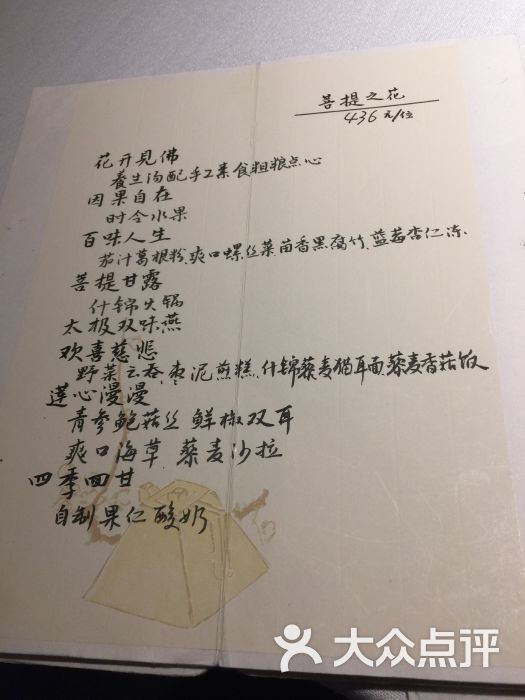 菩提之花
436元/位
花开見佛
養生汤配手工素食粗粮点心
因果自在
时令水果
百味人生
茄汁葛根粉、爽口螺丝菜、茴香黑腐竹、蓝莓杏仁冻.
菩提甘露
什锦火锅
太极双味燕
欢喜慈悲
野菜云吞、枣泥煎糕、什锦藜麦猫耳面、藜麦香菇饭
莲心漫漫
青参鲍菇丝 鲜椒双耳
爽口海草 藜麦沙拉
四季回甘
自制果仁酸奶
大众点评